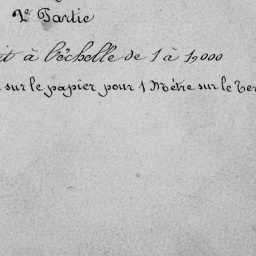 2e Partie
it à l'échelle de 1 à 1,000
sur le papier pour 1 Mètre sur le Ter